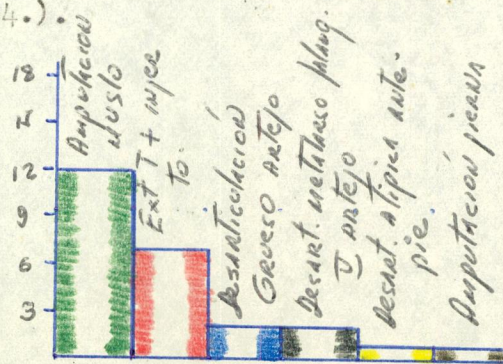 4.).
18
15
12
9
6
3
Amputación
Muslo
Ext T + injer
to.
Desarticulación
Grueso Artejo
Desart. Metatarso falang.
V Artejo
Desart. Atípica ante.
pie.
Amputación pierna